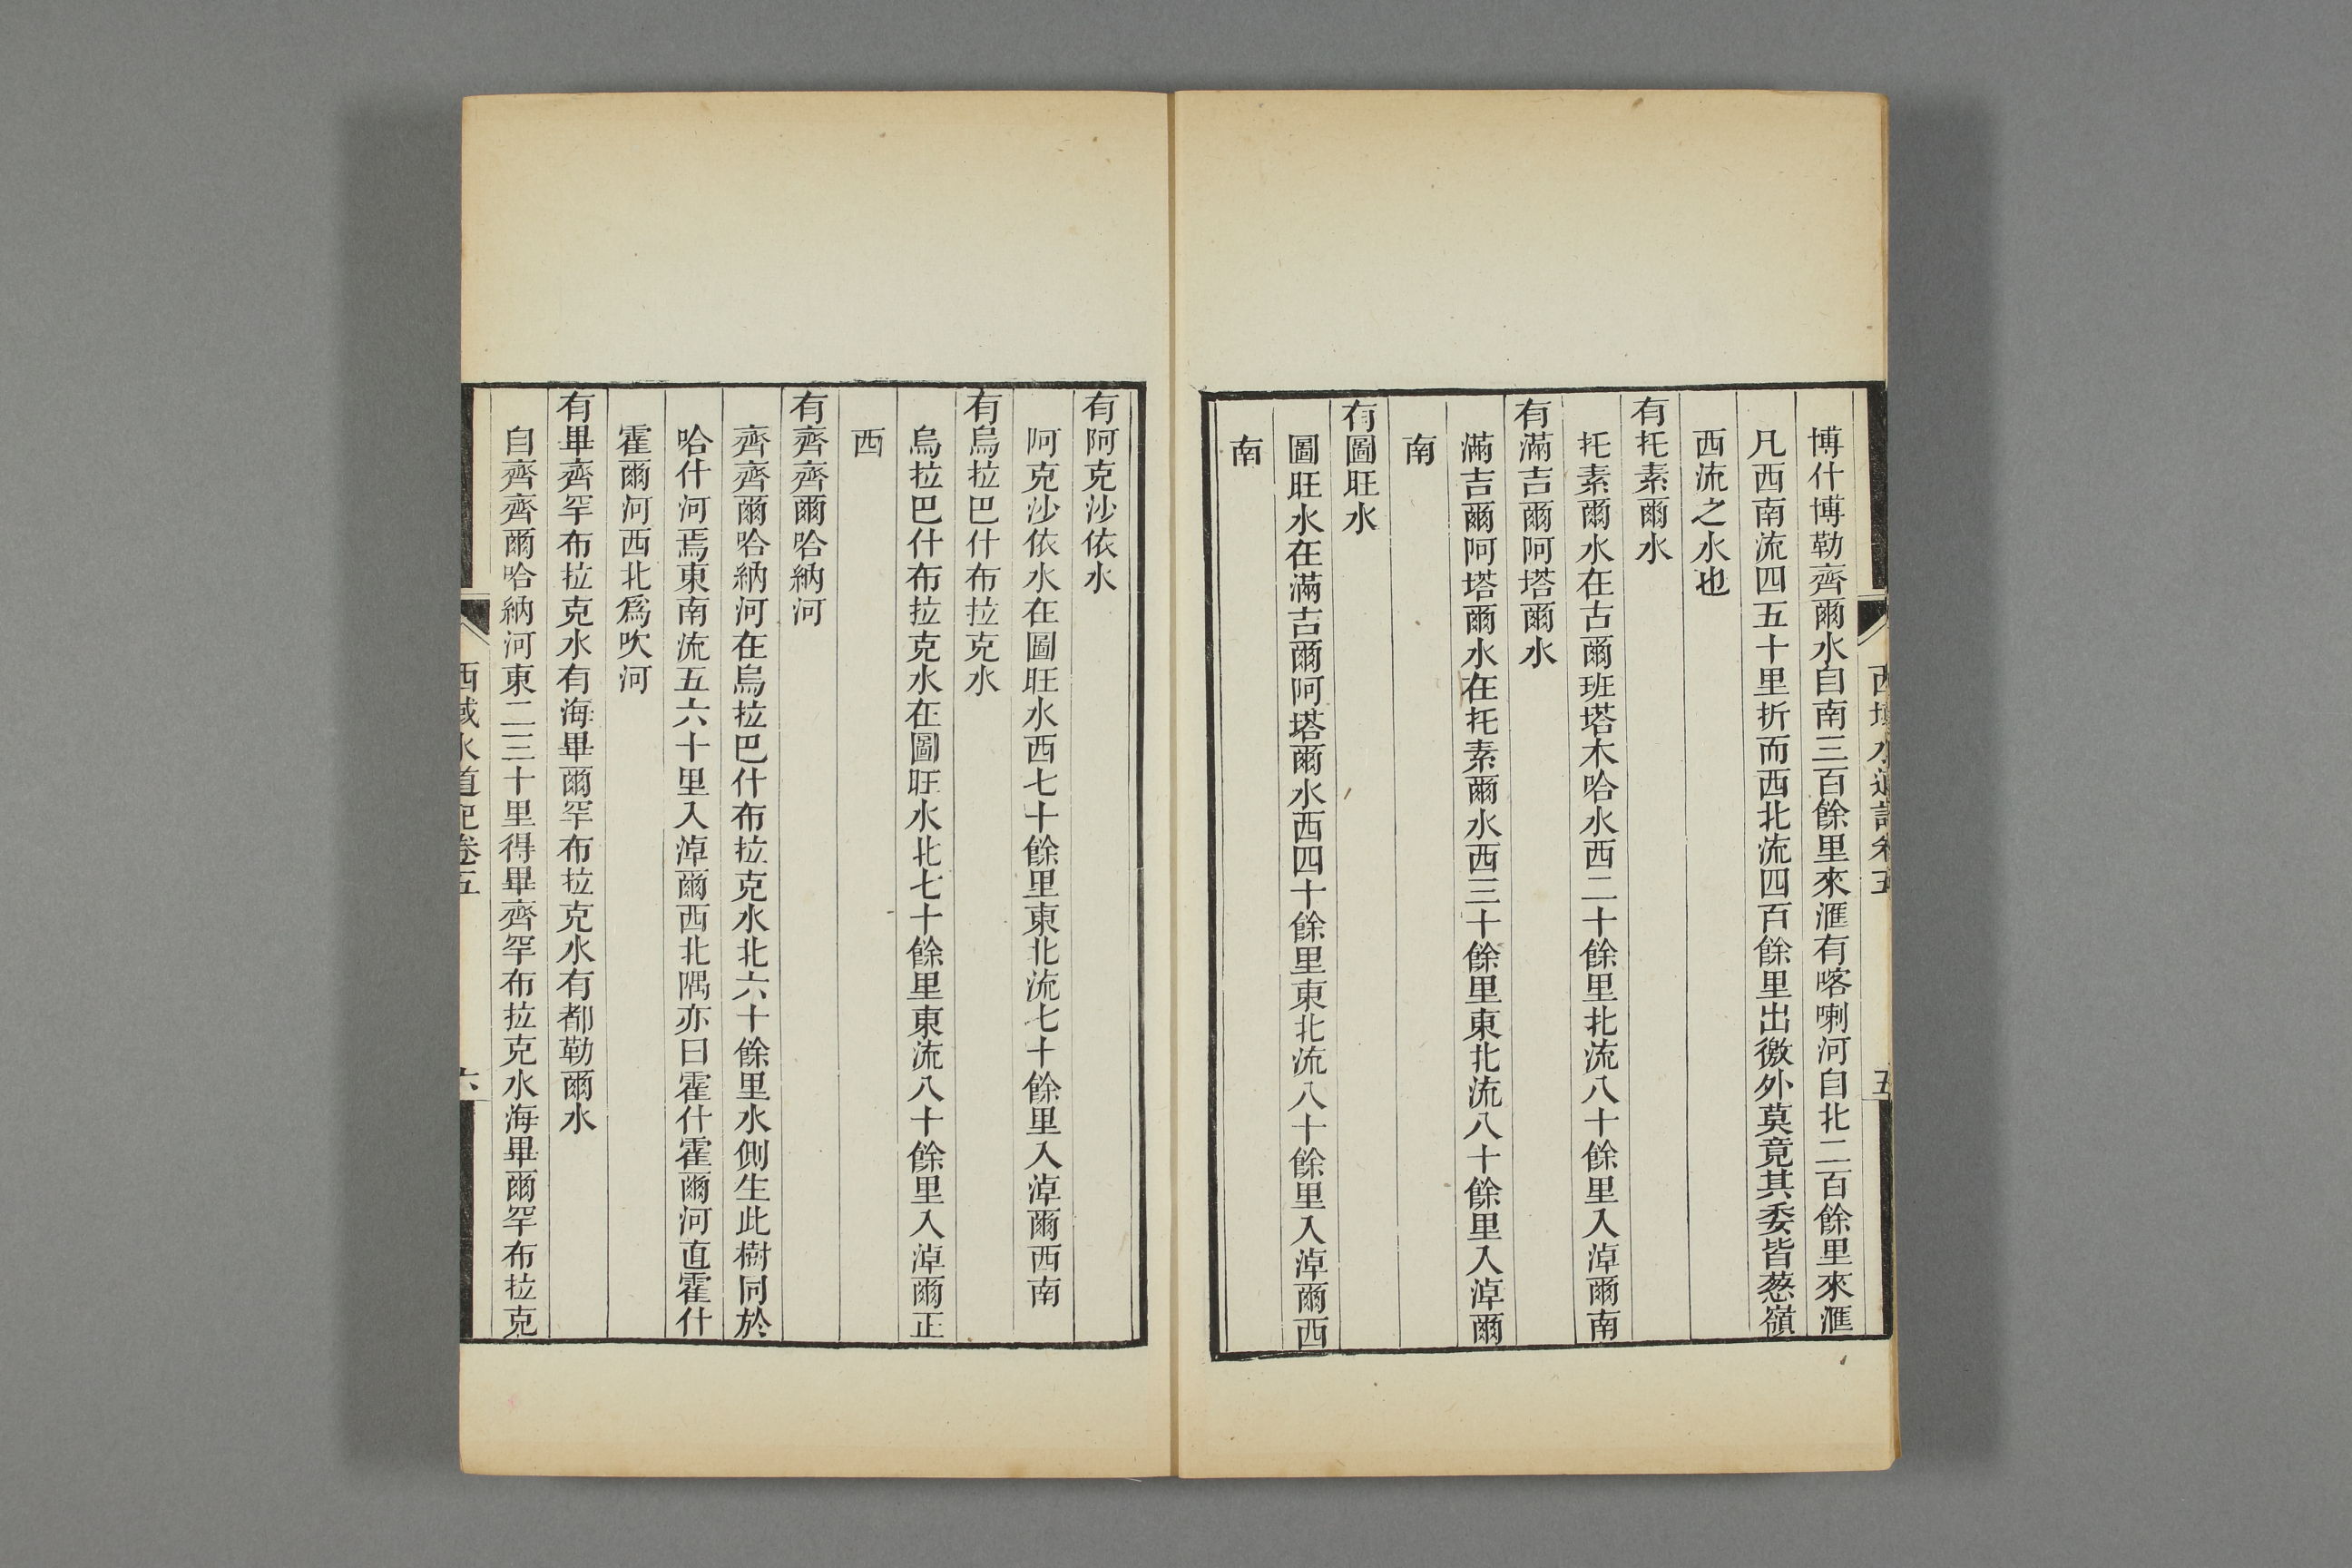 博什博勒齊爾水自南三百餘里來滙有喀喇河自北二百餘里來滙
凡西南流四五十里折而西北流四百餘里出徼外莫竟其委皆蔥嶺
西流之水也
有托素爾水
托素爾水在古爾班塔木哈水西二十餘里北流八十餘里入淖爾南
有滿吉爾阿塔爾水
滿吉爾阿塔爾水在托素爾水西三十餘里東北流八十餘里入淖爾
南
有圖旺水
圖旺水在滿吉爾阿塔爾水西四十餘里東北流八十餘里入淖爾西
南
有阿克沙依水
阿克沙依水在圖旺水西七十餘里東北流七十餘里入淖爾西南
有烏拉巴什布拉克水
烏拉巴什布拉克水在圖旺水北七十餘里東流八十餘里入淖爾正
西
有齊齊爾哈納河
齊齊爾哈納河在烏拉巴什布拉克水北六十餘里水側生此樹同於
哈什河焉東南流五六十里入淖爾西北隅亦曰霍什霍爾河直霍什
霍爾河西北爲吹河
有畢齊罕布拉克水有海畢爾罕布拉克水有都勒爾水
自齊齊爾哈納河東二三十里得畢齊罕布拉克水海畢爾罕布拉克
西域水道記卷五
六